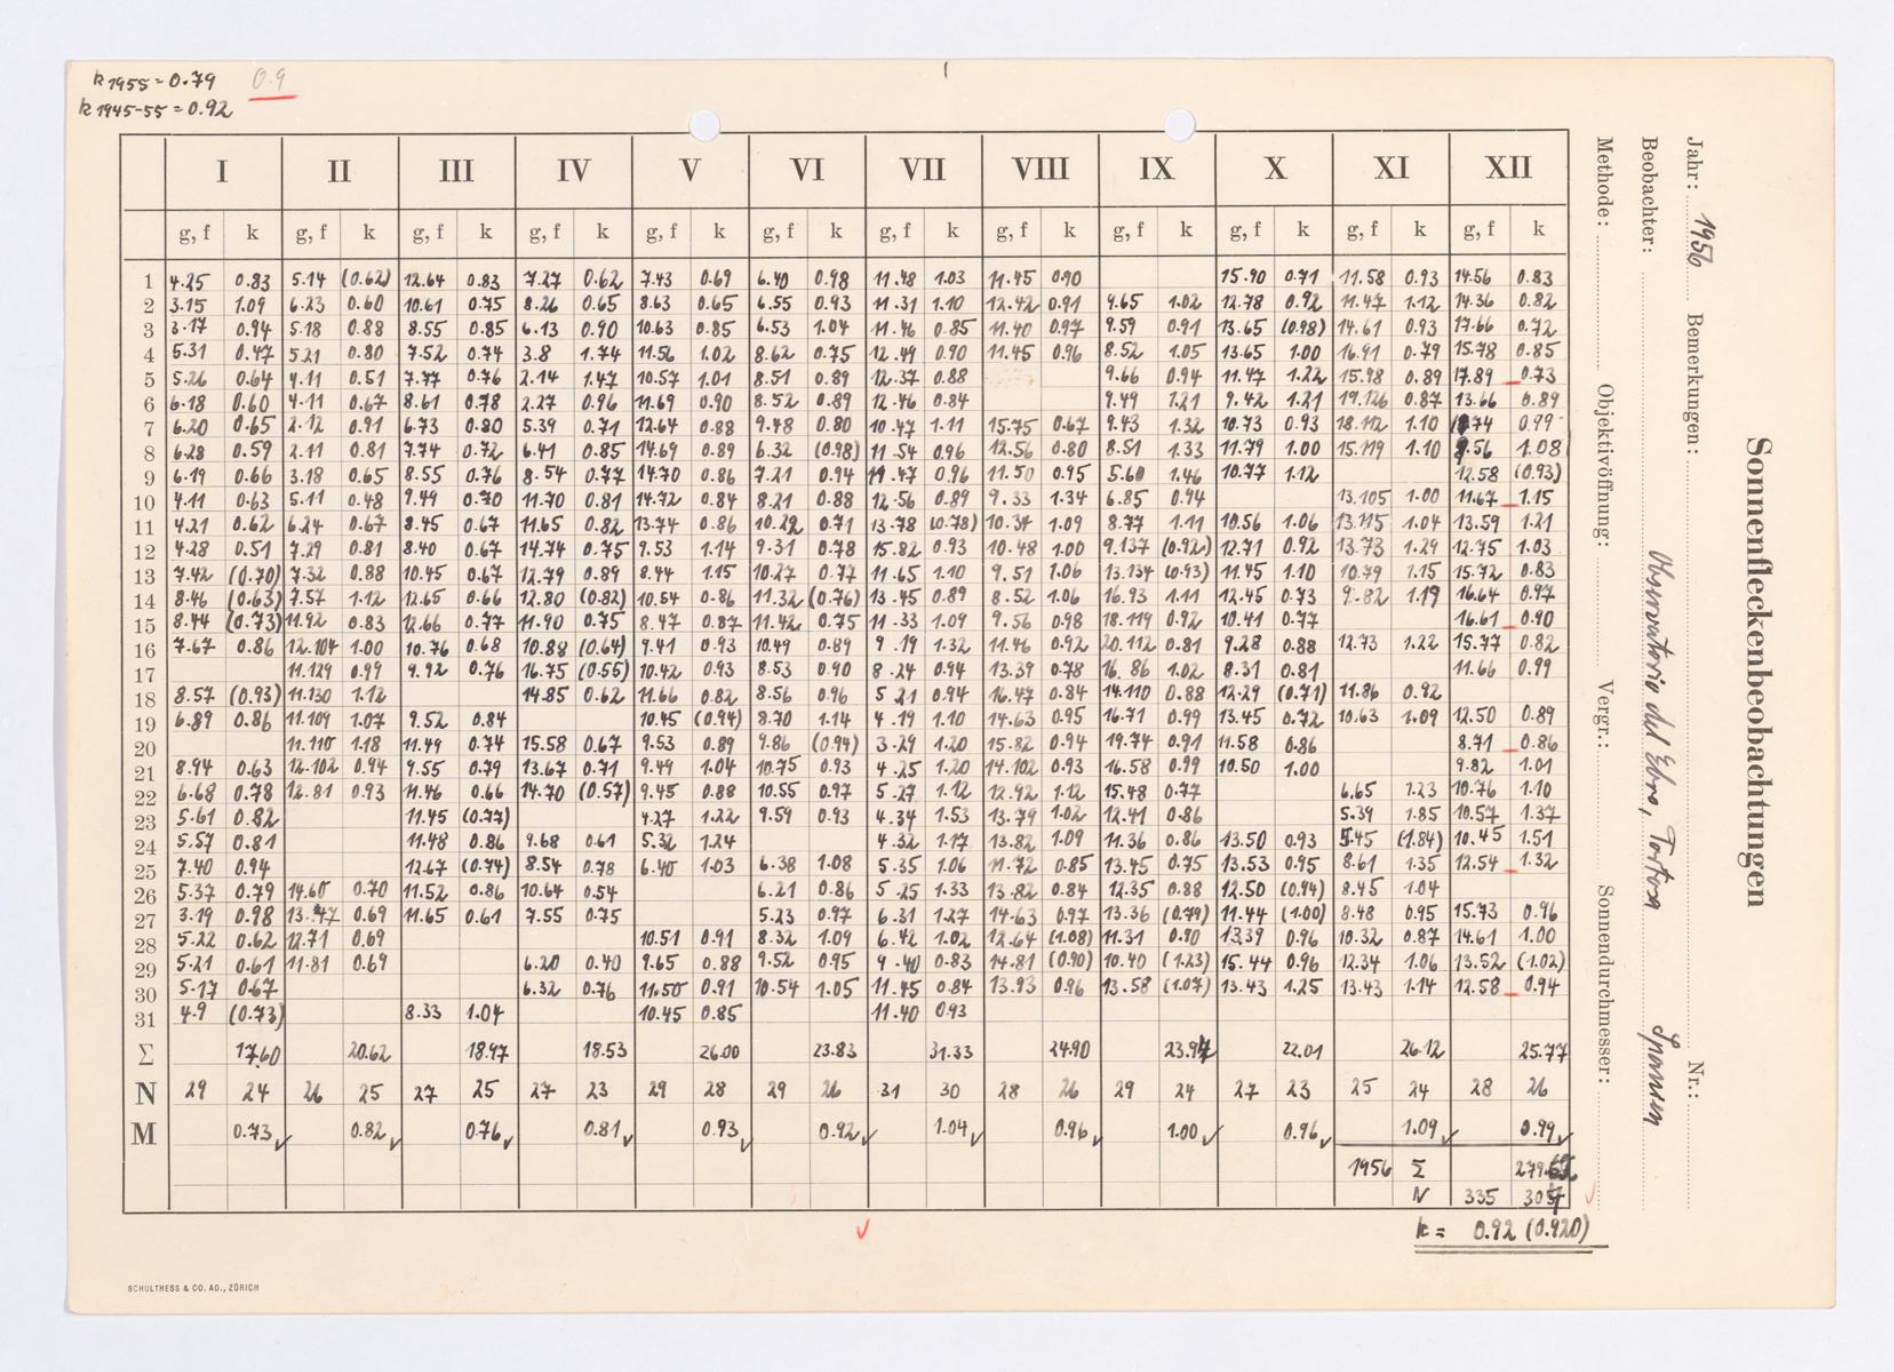 k 1955 = 0.79 0.9
k 1945-55 = 0.92
I II III IV V VI VII VIII IX X XI XII
g, f k g, f k g, f k g, f k g, f k g, f k g, f k g, f k g, f k g, f k g, f k g, f k
1 4.25 0.83 5.14 (0.62) 12.64 0.83 7.27 0.62 7.43 0.69 6.40 0.98 11.48 1.03 11.45 0.90 15.90 0.71 11.58 0.93 14.56 0.83
2 3.15 1.09 6.23 0.60 10.61 0.75 8.26 0.65 8.63 0.65 6.55 0.93 11.31 1.10 12.42 0.91 9.65 1.02 12.78 0.92 11.47 1.12 14.36 0.82
3 3.17 0.94 5.18 0.88 8.55 0.85 6.13 0.90 10.63 0.85 6.53 1.04 11.46 0.85 11.40 0.97 9.59 0.91 13.65 (0.98) 14.61 0.93 17.66 0.72
4 5.31 0.47 5.21 0.80 7.52 0.74 3.8 1.74 11.56 1.02 8.62 0.75 12.49 0.90 11.45 0.96 8.52 1.05 13.65 1.00 16.91 0.79 15.78 0.85
5 5.26 0.64 4.11 0.51 7.77 0.76 2.14 1.47 10.57 1.01 8.51 0.89 12.37 0.88 9.66 0.94 11.47 1.22 15.98 0.89 17.89 0.73
6 6.18 0.60 4.11 0.67 8.61 0.78 2.27 0.96 11.69 0.90 8.52 0.89 12.46 0.84 9.49 1.21 9.42 1.21 19.126 0.87 13.66 0.89
7 6.20 0.65 2.12 0.91 6.73 0.80 5.39 0.71 12.64 0.88 9.48 0.80 10.47 1.11 15.75 0.67 9.43 1.32 10.73 0.93 18.112 1.10 0.99
8 6.28 0.59 2.11 0.81 7.74 0.72 6.41 0.85 14.69 0.89 6.32 (0.98) 11.54 0.96 12.56 0.80 8.51 1.33 11.79 1.00 15.119 1.10 1.08
9 6.19 0.66 3.18 0.65 8.55 0.76 8.54 0.77 14.70 0.86 7.21 0.94 11.47 0.96 11.50 0.95 5.60 1.46 10.77 1.12 12.58 (0.93)
10 4.11 0.63 5.11 0.48 9.49 0.70 11.70 0.81 14.72 0.84 8.21 0.88 12.56 0.89 9.33 1.34 6.85 0.94 13.105 1.00 11.67 1.15
11 4.21 0.62 6.24 0.67 8.45 0.67 11.65 0.82 13.74 0.86 10.22 0.71 13.78 (0.78) 10.34 1.09 8.77 1.11 10.56 1.06 13.115 1.04 13.59 1.21
12 4.28 0.51 7.29 0.81 8.40 0.67 14.74 0.75 9.53 1.14 9.31 0.78 15.82 0.93 10.48 1.00 9.137 (0.92) 12.71 0.92 13.73 1.29 12.75 1.03
13 7.42 (0.70) 7.32 0.88 10.45 0.67 12.79 0.89 8.44 1.15 10.27 0.77 11.65 1.10 9.51 1.06 13.134 (0.93) 11.45 1.10 10.79 1.15 15.72 0.83
14 8.46 (0.63) 7.57 1.12 12.65 0.66 12.80 (0.82) 10.54 0.86 11.32 (0.76) 13.45 0.89 8.52 1.06 16.93 1.11 12.45 0.73 9.82 1.19 16.64 0.97
15 8.44 (0.73) 11.92 0.83 12.66 0.77 11.90 0.75 8.47 0.87 11.42 0.75 11.33 1.09 9.56 0.98 18.119 0.92 10.41 0.77 16.61 0.90
16 7.67 0.86 12.104 1.00 10.76 0.68 10.88 (0.64) 9.41 0.93 10.49 0.89 9.19 1.32 11.46 0.92 20.112 0.81 9.28 0.88 12.73 1.22 15.77 0.82
17 11.129 0.99 9.92 0.76 16.75 (0.55) 10.42 0.93 8.53 0.90 8.24 0.94 13.39 0.78 16.86 1.02 8.31 0.81 11.66 0.99
18 8.57 (0.93) 11.130 1.12 14.85 0.62 11.66 0.82 8.56 0.96 5.21 0.94 16.47 0.84 14.110 0.88 12.29 (0.71) 11.86 0.92
19 6.89 0.86 11.109 1.07 9.52 0.84 10.45 (0.94) 8.70 1.14 4.19 1.10 14.63 0.95 16.71 0.99 13.45 0.72 10.63 1.09 12.50 0.89
20 11.110 1.18 11.49 0.74 15.58 0.67 9.53 0.89 9.86 (0.94) 3.29 1.20 15.82 0.94 19.74 0.91 11.58 0.86 8.71 0.86
21 8.94 0.63 12.102 0.94 9.55 0.79 13.67 0.71 9.49 1.04 10.75 0.93 4.25 1.20 14.102 0.93 16.58 0.99 10.50 1.00 9.82 1.01
22 6.68 0.78 12.81 0.93 11.46 0.66 14.70 (0.57) 9.45 0.88 10.55 0.97 5.27 1.12 12.92 1.12 15.48 0.77 6.65 1.23 10.76 1.10
23 5.61 0.82 11.45 (0.77) 4.27 1.22 9.59 0.93 4.34 1.53 13.79 1.02 12.41 0.86 5.39 1.85 10.57 1.37
24 5.57 0.81 11.48 0.86 9.68 0.61 5.32 1.24 4.32 1.17 13.82 1.09 11.36 0.86 13.50 0.93 5.45 (1.84) 10.45 1.51
25 7.40 0.94 12.67 (0.74) 8.54 0.78 6.40 1.03 6.38 1.08 5.35 1.06 11.72 0.85 13.45 0.75 13.53 0.95 8.61 1.35 12.54 1.32
26 5.37 0.79 14.60 0.70 11.52 0.86 10.64 0.54 6.21 0.86 5.25 1.33 13.82 0.84 12.35 0.88 12.50 (0.94) 8.45 1.04
27 3.19 0.98 13.47 0.69 11.65 0.61 7.55 0.75 5.23 0.97 6.31 1.27 14.63 0.97 13.36 (0.79) 11.44 (1.00) 8.48 0.95 15.73 0.96
28 5.22 0.62 12.71 0.69 10.51 0.91 8.32 1.09 6.42 1.02 12.64 (1.08) 11.31 0.90 13.39 0.96 10.32 0.87 14.61 1.00
29 5.21 0.61 11.81 0.69 6.20 0.40 9.65 0.88 9.52 0.95 9.40 0.83 14.81 (0.90) 10.40 (1.23) 15.44 0.96 12.34 1.06 13.52 (1.02)
30 5.17 0.67 6.32 0.76 11.50 0.91 10.54 1.05 11.45 0.84 13.93 0.96 13.58 (1.07) 13.43 1.25 13.43 1.14 12.58 0.94
31 4.9 (0.73) 8.33 1.04 10.45 0.85 11.40 0.93
Σ 17.60 20.62 18.97 18.53 26.00 23.83 31.33 24.90 22.01 26.12 25.77
N 29 24 26 25 27 25 27 23 29 28 29 26 31 30 28 26 29 24 27 23 25 24 28 26
M 0.73 0.82 0.76 0.81 0.93 0.92 1.04 0.96 1.00 0.96 1.09 0.99
1956 Σ
N 335
k = 0.92 (0.920)
SCHULTHESS & CO. AG., ZÜRICH
Sonnenfleckenbeobachtungen
Jahr: 1956 Bemerkungen: Nr.:
Beobachter: Observatorio del Ebro, Tortosa Spanien
Methode: Objektivöffnung: Vergr.: Sonnendurchmesser: